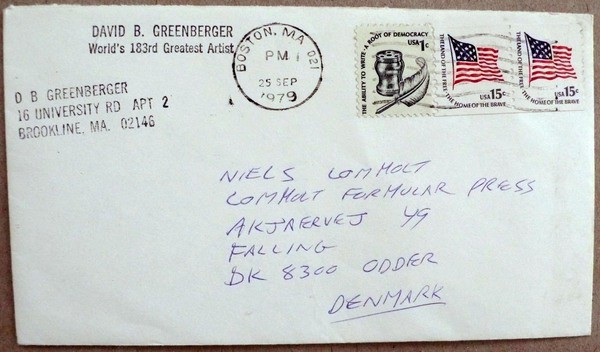 DAVID B. GREENBERGER
World's 183rd Greatest Artist
D B GREENBERGER
16 UNIVERSITY RD APT 2
BROOKLINE, MA. 02146
BOSTON, MA 021
PM
25 SEP
1979
THE ABILITY TO WRITE · A ROOT OF DEMOCRACY
USA 1c
THE LAND OF THE FREE
THE HOME OF THE BRAVE
USA 15c
THE LAND OF THE FREE
THE HOME OF THE BRAVE
USA 15c
NIELS LOMHOLT
LOMHOLT FORMULAR PRESS
AKJAERVEJ 49
FALLING
DK 8300 ODDER
DENMARK